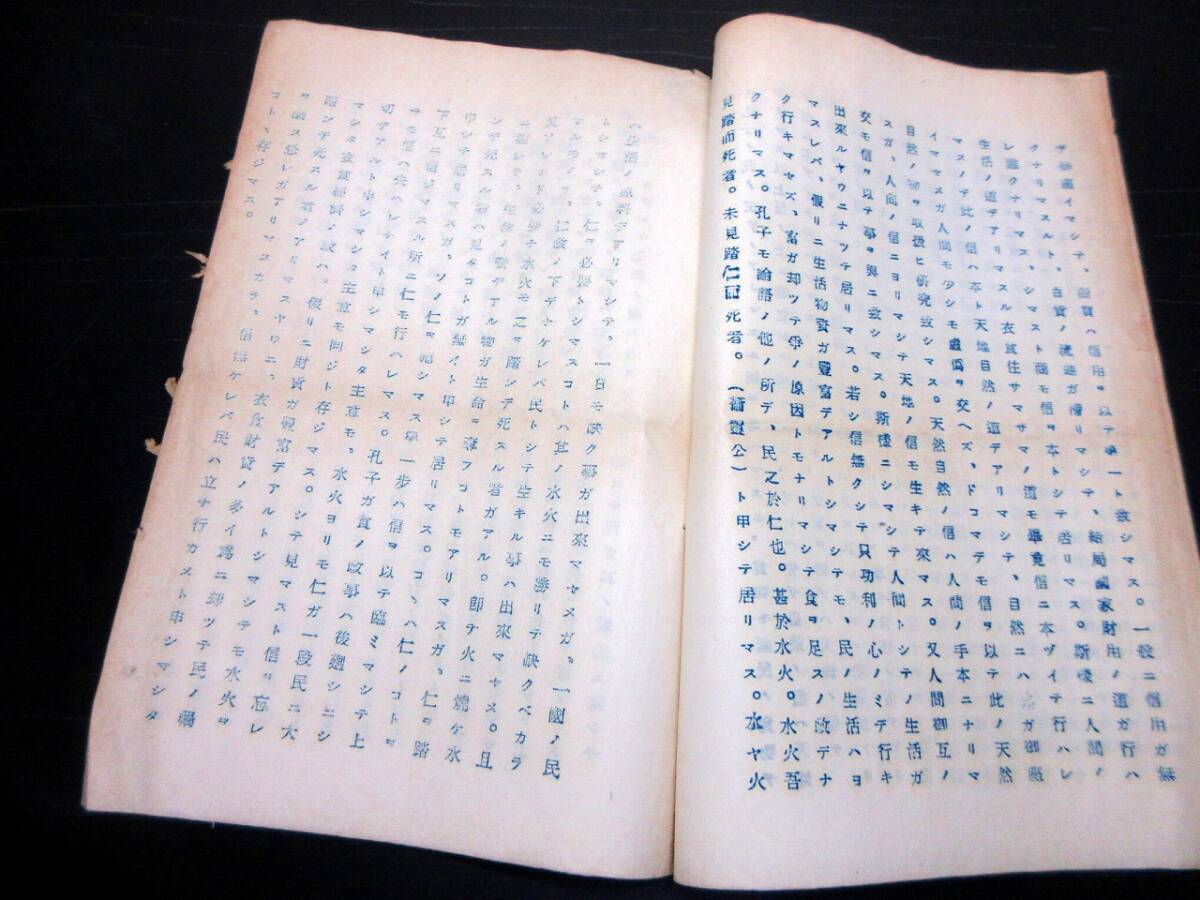 テ參座イマシテ、商賣ハ信用ヲ以テ第一ト致シマス。一般ニ信用ガ無
クナリマスルト、自貨ノ流通ガ滯リマシテ、結局國家財用ノ道ガ行ハ
レ難クナリマス、シマスト商モ信ヲ本トシテ居リマス。斯樣ニ人間ノ
生活ノ道デアリマスル衣食住サマザマノ道モ畢竟信ニ本ヅイテ行ハレ
マスノデ此ノ信ハ本ト天地自然ノ道デアリマシテ、自然ニハ
イママスガ人間モ少シモ虛僞ヲ交ヘズ、ドコマデモ信ヲ以テ此ノ天然
自然ノ物ヲ取扱ヒ研究致シマス。天然自然ノ信ハ人間ノ手本ニナリマ
スガ、人間ノ信ニヨリマシテ天地ノ信モ生キテ來マス。又人間御互ノ
交モ信ヲ以テ事ヲ與ニ致シマス。斯樣ニシマシテ人間トシテノ生活ガ
出來ルヤウニナツテ居リマス。若シ信無クシテ只功利ノ心ノミデ行キ
マスレバ、假リニ生活物資ガ豐富デアルトシマシテモ、民ノ生活ハヨ
ク行キマセズ、富ガ却ツテ爭ノ原因トモナリマシテ食ヲ足スノ政デナ
クナリマス。孔子モ論語ノ他ノ所デ、民之於仁也。甚於水火。水火吾
見蹈而死者。未見蹈仁而死者。(衞靈公)ト申シテ居リマス。水ヤ火
ハ生活ノ原料デアリマシテ、一日モ缺ク事ガ出來マセヌガ、一國ノ民
トシマシテ、仁ヲ必要トシマスコトハ其ノ水火ニモ勝リテ缺クベカラ
ザルモノデ、仁政ノ下デナケレバ民トシテ生キル事ハ出來マセヌ。且
又ソレホド必要ナ水火モ之ヲ蹈ンデ死スル者ガアル。卽チ火ニ燒ケ水
ニ溺レテ、生活ノ資デアル物ガ生命ヲ奪フコトモアリマスガ、仁ヲ蹈
ンデ死スル者ハ見タコトガ無イト申シテ居リマス。コヽハ仁ノコトヲ
申シテ居リマスガ、ソノ仁ヲ施シマス第一步ハ信ヲ以テ臨ミマシテ上
下互ニ信ジマスル所ニ仁モ行ハレマス。孔子ガ食ノ政事ハ後廻シニシ
テモ信ハ失ハレナイト申シマシタ主意モ、水火ヨリモ仁ガ一段民ニ大
切デアルト申シマシタ主意モ同ジト存ジマス。シテ見マスト信ヲ忘レ
マシタ衣食經濟ノ政ハ、假リニ財貨ガ豐富デアルトシマシテモ水火ヲ
蹈ンデ死スル者ノアリマスヤウニ、衣食財貨ノ多イ爲ニ却ツテ民ノ禍
ヲ釀ス恐レガアリマスカラ、信無ケレバ民ハ立チ行カヌト申シマシタ
コトヽ存ジマス。